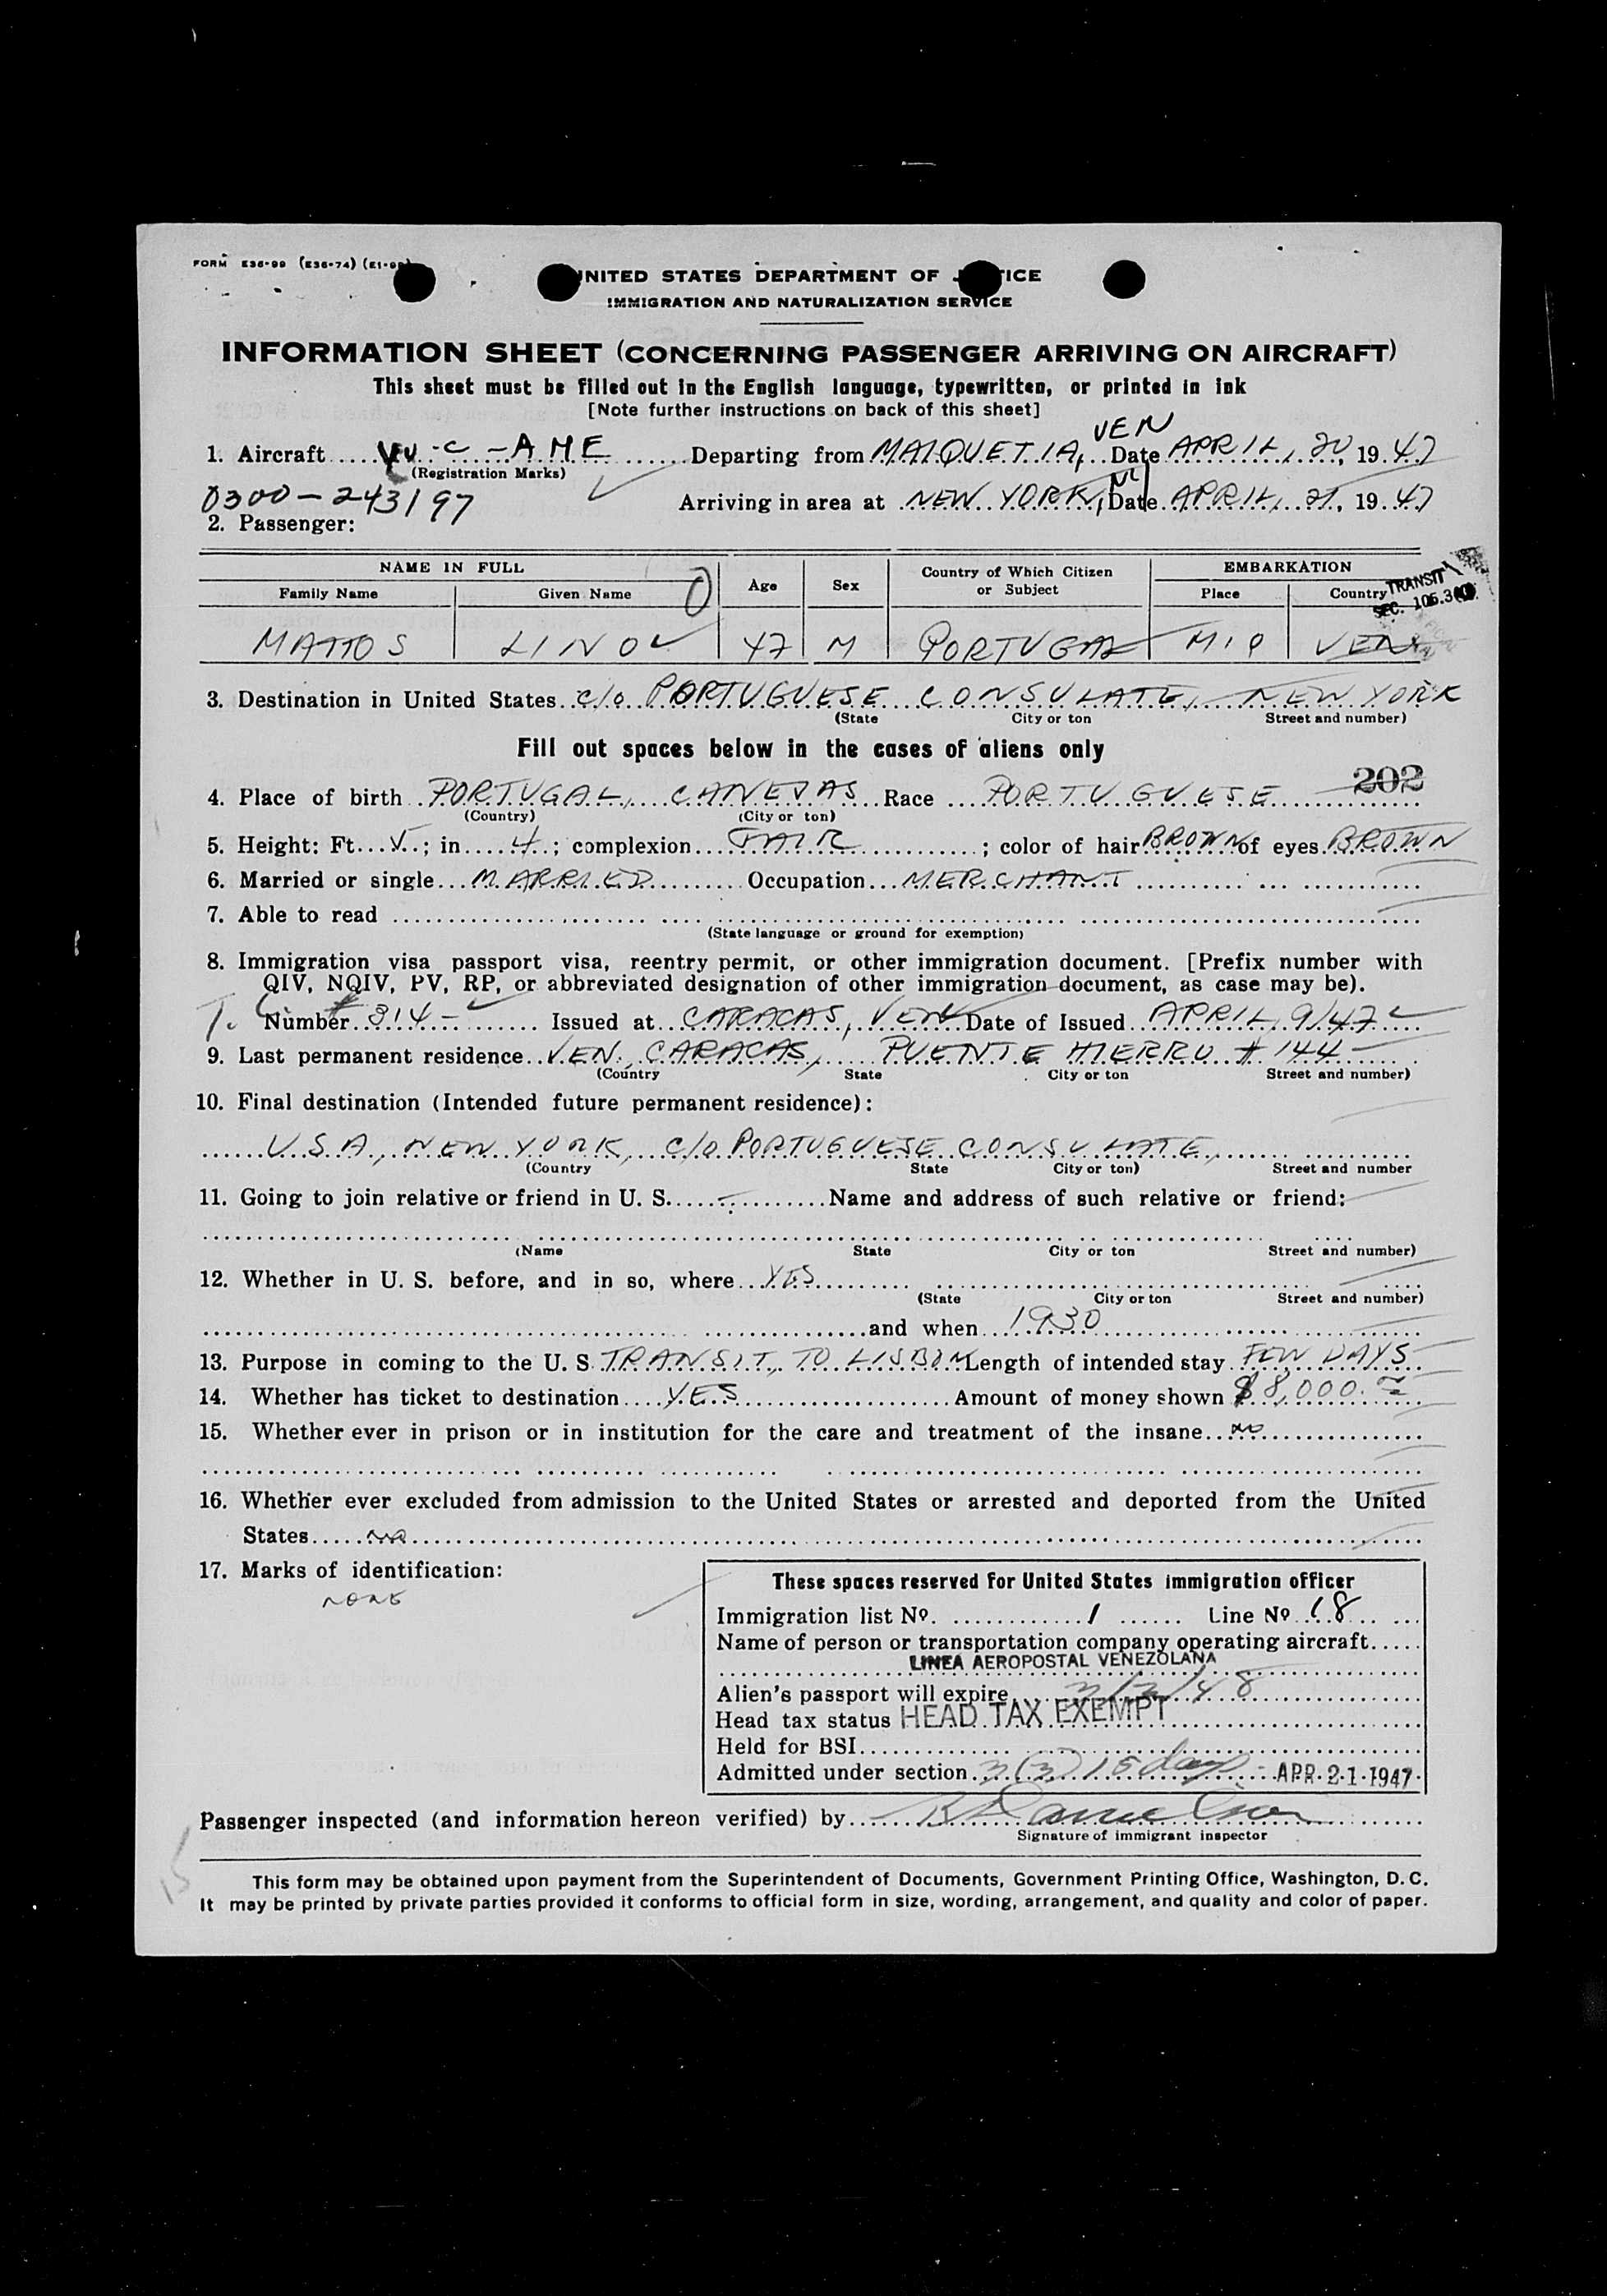 FORM E36-99 (E36-74) (E1-9
UNITED STATES DEPARTMENT OF J TICE
IMMIGRATION AND NATURALIZATION SERVICE
INFORMATION SHEET (CONCERNING PASSENGER ARRIVING ON AIRCRAFT)
This sheet must be filled out in the English language, typewritten, or printed in ink
[Note further instructions on back of this sheet]
VEN
1. Aircraft -C-AME Departing from MAIQUETIA, Date APRIL, 20, 1947
(Registration Marks)
0300-243197 Arriving in area at NEW YORK, NY Date APRIL, 21, 1947
2. Passenger:
NAME IN FULL Age Sex Country of Which Citizen or Subject EMBARKATION
Family Name Given Name 0 Place Country
TRANSIT
SEC. 105.3
MATTOS LINO 47 M PORTUGAL MIQ VEN
3. Destination in United States c/o PORTUGUESE CONSULATE, NEW YORK
(State City or ton Street and number)
Fill out spaces below in the cases of aliens only
202
4. Place of birth PORTUGAL, CANEJAS Race PORTUGUESE
(Country) (City or ton)
5. Height: Ft. 5; in 4; complexion FAIR; color of hair BROWN of eyes BROWN
6. Married or single MARRIED Occupation MERCHANT
7. Able to read
(State language or ground for exemption)
8. Immigration visa passport visa, reentry permit, or other immigration document. [Prefix number with
QIV, NQIV, PV, RP, or abbreviated designation of other immigration document, as case may be).
Number # 314- Issued at CARACAS, VEN Date of Issued APRIL 9/47
9. Last permanent residence VEN, CARACAS, PUENTE HIERRO # 144
(Country State City or ton Street and number)
10. Final destination (Intended future permanent residence):
USA, NEW YORK, c/o PORTUGUESE CONSULATE,
(Country State City or ton) Street and number
11. Going to join relative or friend in U. S. - Name and address of such relative or friend:
(Name State City or ton Street and number)
12. Whether in U. S. before, and in so, where YES
(State City or ton Street and number)
and when 1930
13. Purpose in coming to the U. S TRANSIT, TO LISBON Length of intended stay FEW DAYS
14. Whether has ticket to destination YES Amount of money shown $8,000.
15. Whether ever in prison or in institution for the care and treatment of the insane no
16. Whether ever excluded from admission to the United States or arrested and deported from the United
States no
17. Marks of identification:
NONE
These spaces reserved for United States immigration officer
Immigration list Nº. 1 Line Nº 18
Name of person or transportation company operating aircraft
LINEA AEROPOSTAL VENEZOLANA
Alien's passport will expire 3/2/48
Head tax status HEAD TAX EXEMPT
Held for BSI
Admitted under section 3(3) 15 days APR 21 1947
Passenger inspected (and information hereon verified) by
Signature of immigrant inspector
15
This form may be obtained upon payment from the Superintendent of Documents, Government Printing Office, Washington, D. C.
It may be printed by private parties provided it conforms to official form in size, wording, arrangement, and quality and color of paper.